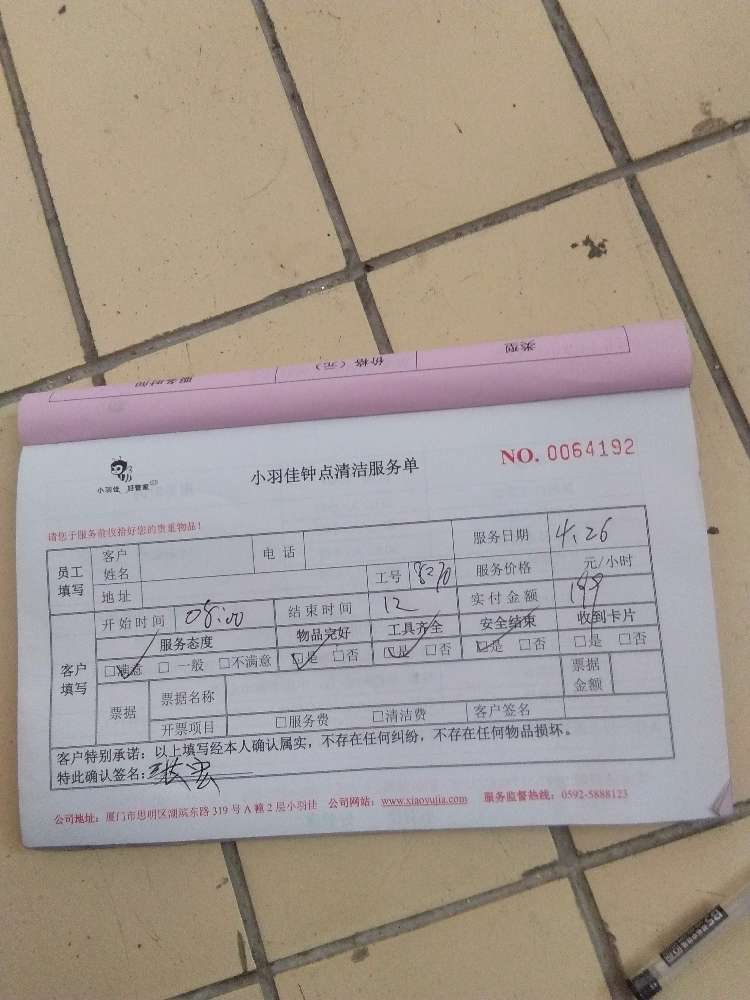 类型
价格（元）
服务时间
小羽佳 好管家
小羽佳钟点清洁服务单
NO. 0064192
请您于服务前收拾好您的贵重物品！
员工填写 客户姓名 电话 服务日期 4.26
地址 工号 8270 服务价格 元/小时
客户填写 开始时间 08:00 结束时间 12 实付金额 199
服务态度 物品完好 工具齐全 安全结束 收到卡片
□满意 □一般 □不满意 □是 □否 □是 □否 □是 □否 □是 □否
票据 票据名称 票据金额
开票项目 □服务费 □清洁费 客户签名
客户特别承诺：以上填写经本人确认属实，不存在任何纠纷，不存在任何物品损坏。
特此确认签名：
公司地址：厦门市思明区湖滨东路 319 号 A 幢 2 层小羽佳 公司网站：www.xiaoyujia.com 服务监督热线：0592-5888123